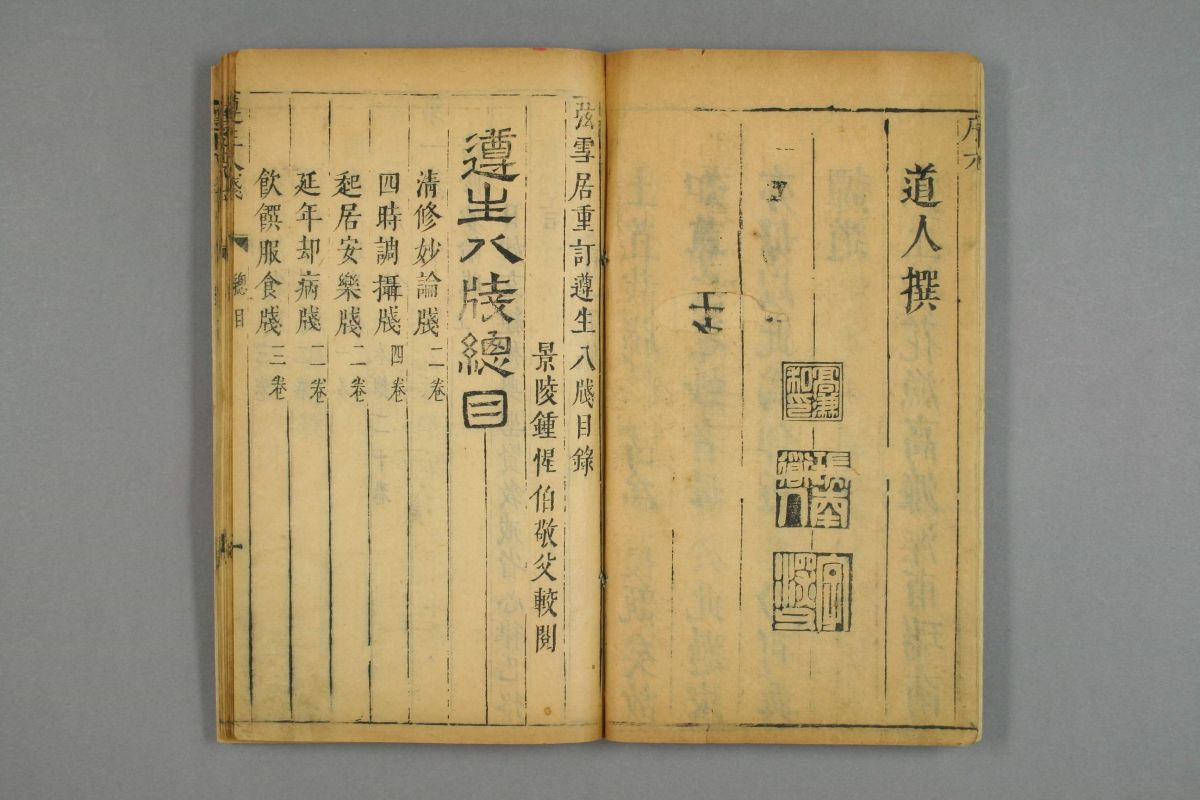 道人撰
弦雪居重訂遵生八牋目錄
景陵鍾惺伯敬父較閱
遵生八牋總目
清修妙論牋二卷
四時調攝牋四卷
起居安樂牋二卷
延年却病牋二卷
飲饌服食牋三卷
總目
一